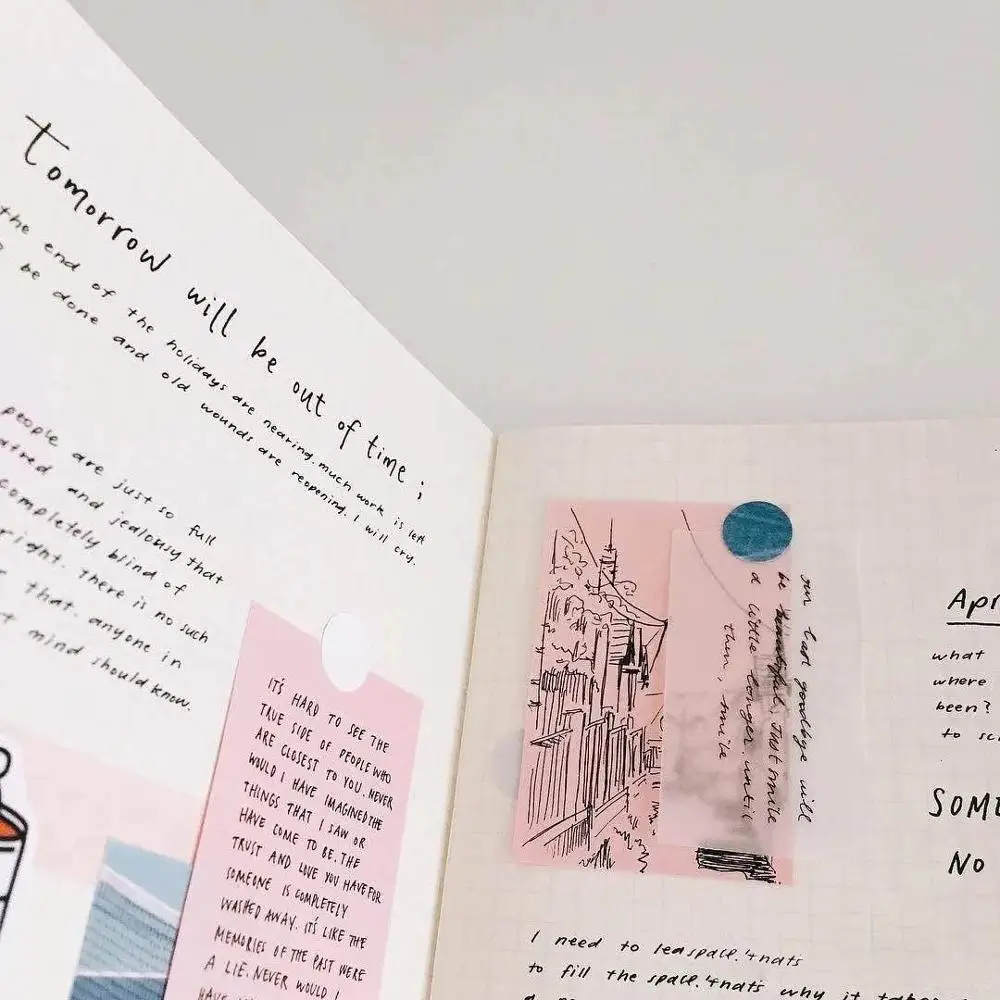 Tomorrow will be out of time ;
the end of the holidays are nearing. much work is left
be done and old wounds are reopening. I will cry.
people are just so full
and jealousy that
completely blind of
right. there is no such
that. anyone in
mind should know.
IT'S HARD TO SEE THE
TRUE SIDE OF PEOPLE WHO
ARE CLOSEST TO YOU. NEVER
WOULD I HAVE IMAGINED THE
THINGS THAT I SAW OR
HAVE COME TO BE. THE
TRUST AND LOVE YOU HAVE FOR
SOMEONE IS COMPLETELY
WASHED AWAY. IT'S LIKE THE
MEMORIES OF THE PAST WERE
A LIE. NEVER WOULD I
our last goodbye will
be beautiful. just smile
a little longer. until
then, smile
Apr
what
where
been?
to
SOME
NO
I need to space. thats
to fill the space. thats why it takes